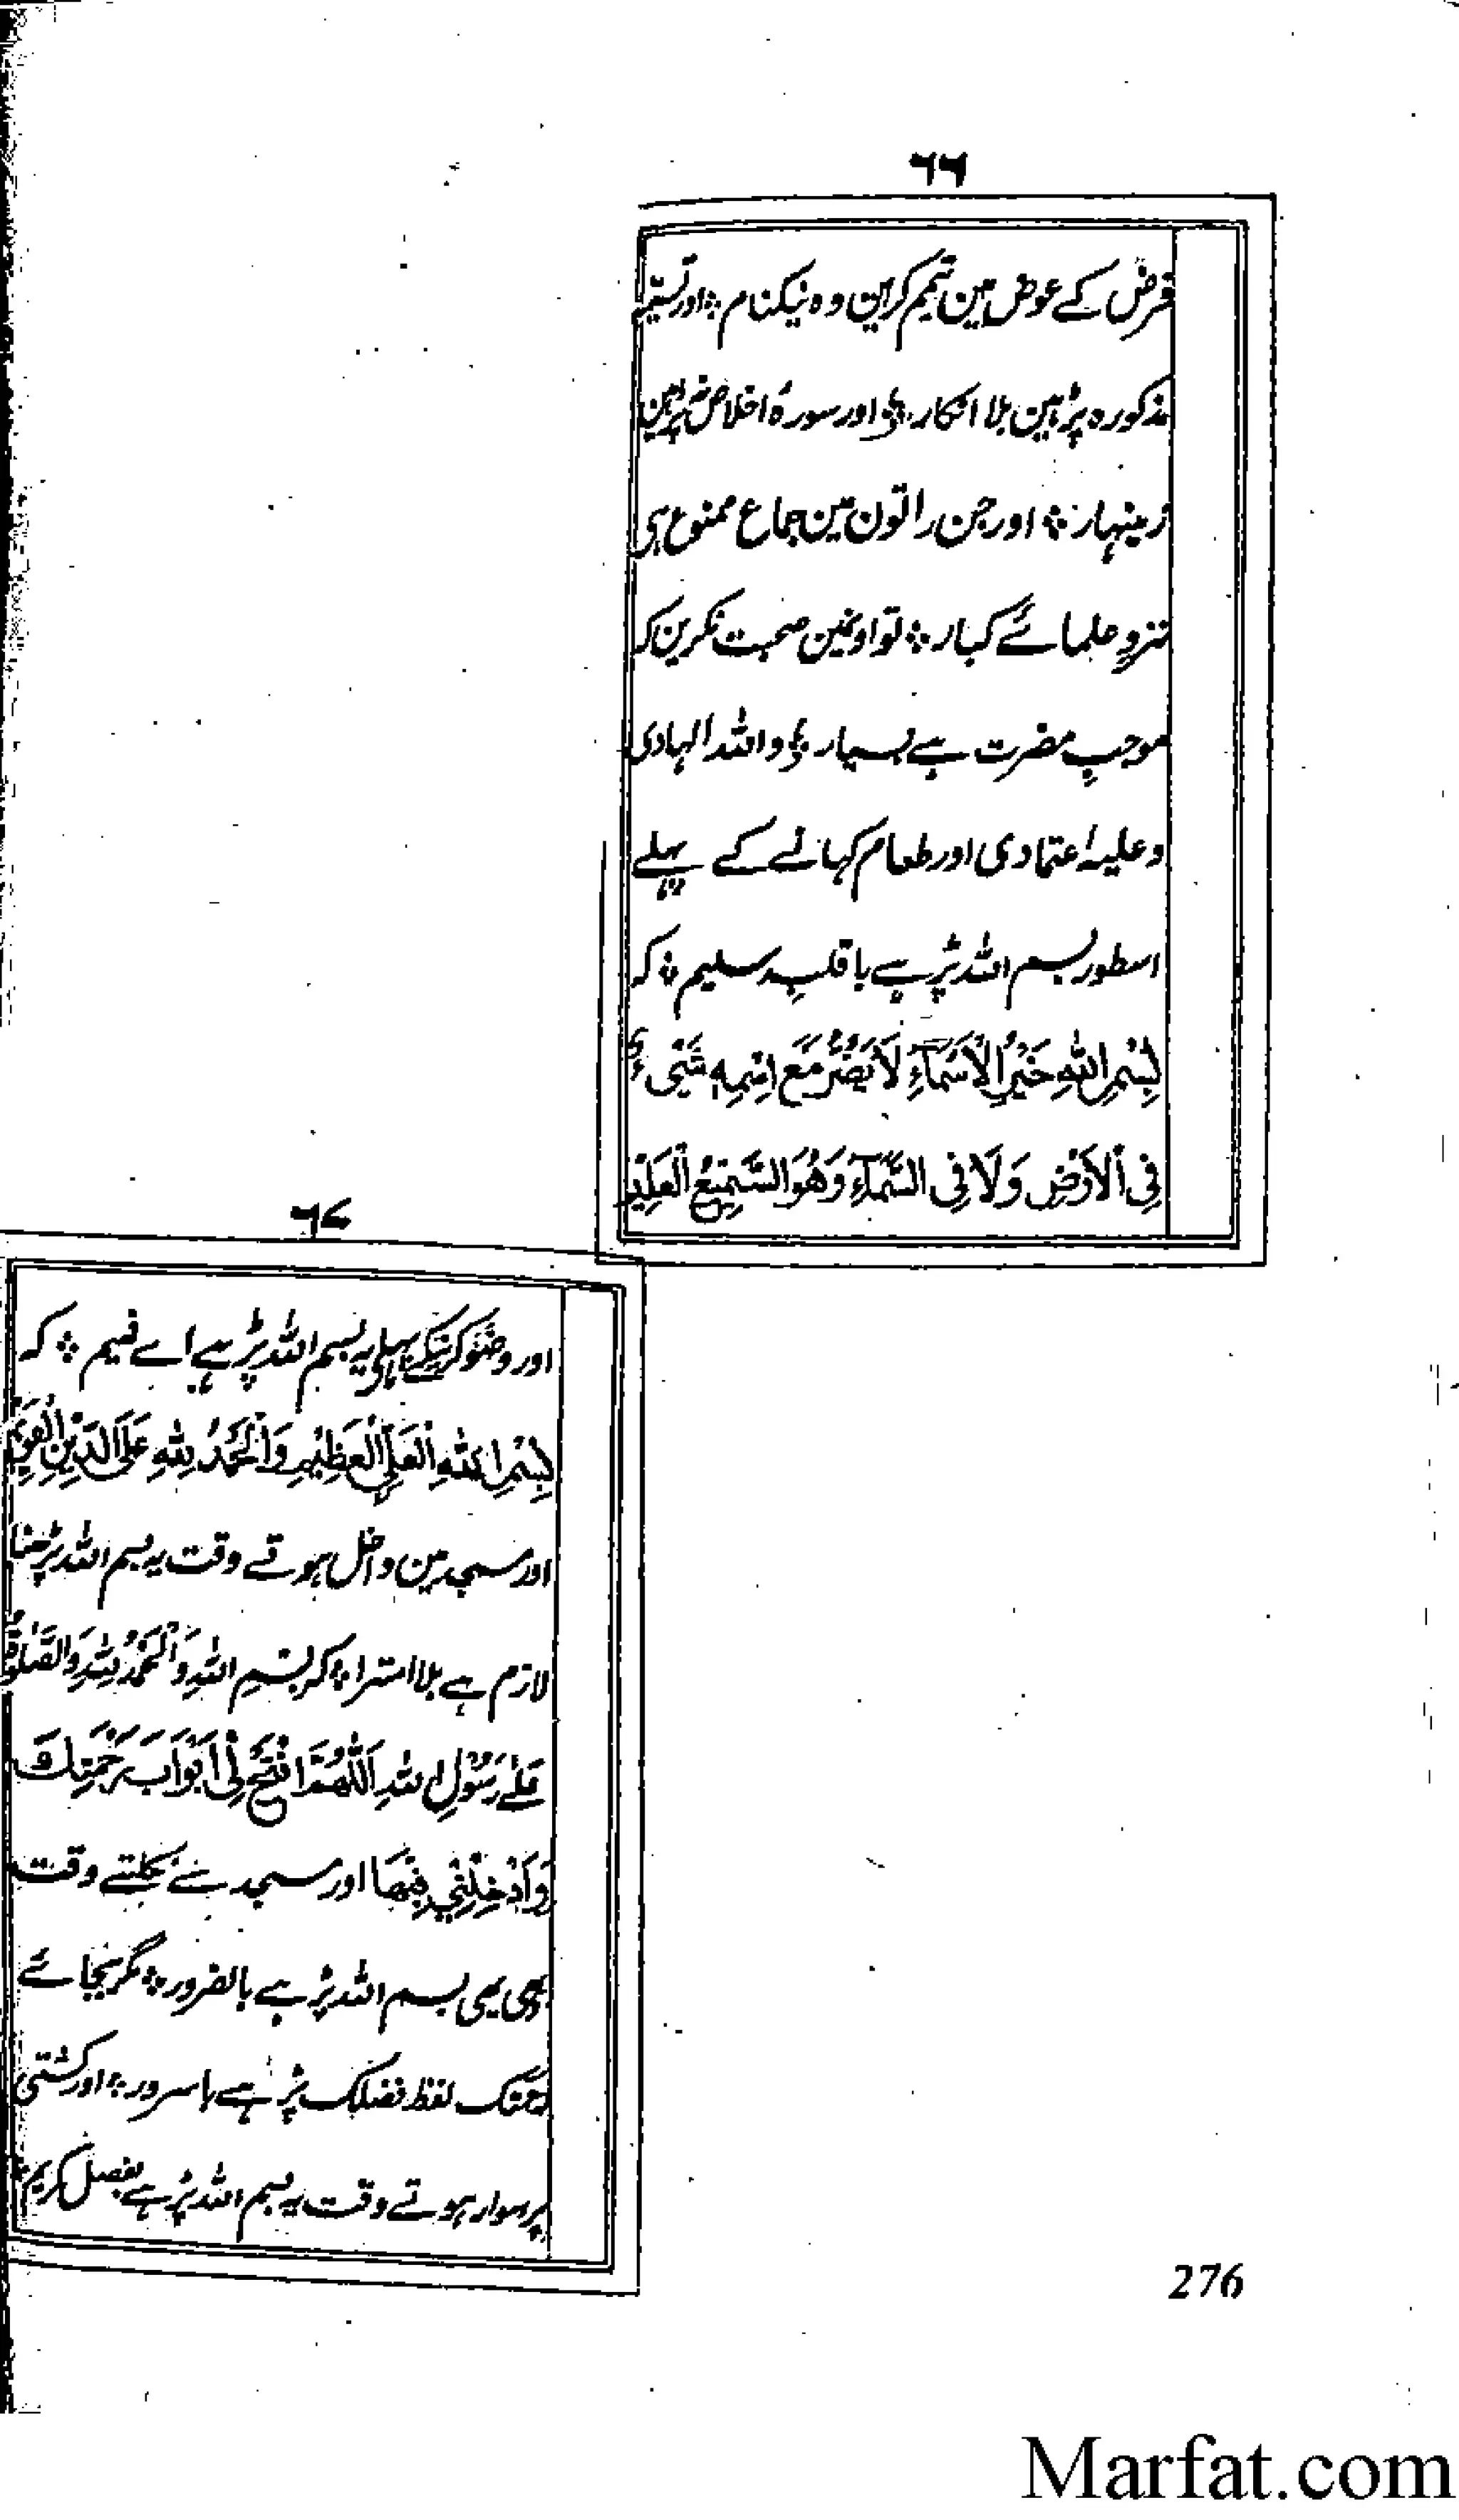 ٦٦
قرض کے عوض مین تیمم کراین وہ نیکنام ؞ اور تسمیۂ
مذکورہ پڑہین بلا انکار ؞ اور سورۂ اخلاص نہ پڑہین
زینہار ؞ اور جن راتون مین جماع ممنوع ہی
نزدِ علمائے کبار ؞ تو اونمین صحبت نکرین کہ
موجبِ مضرت ہے بسیار ؞ واللہ الہادی
وعلیہ اعتمادی اور طعام کہانے کے پہلے
اسطور بسم اللہ پڑہے با قلبِ سلیم ؞ کہ
بِسْمِ اللّٰهِ خَيْرِ الْاَسْمَآءِ لَا يَضُرُّ مَعَ اسْمِهٖ شَيْءٌ
فِي الْاَرْضِ وَلَا فِي السَّمَآءِ وَهُوَ السَّمِيْعُ الْعَلِيْمُ
٦٧
اور وضو کرنیکے پہلی یہ بسم اللہ پڑہے اے فہیم ؞ کہ
بِسْمِ اللّٰهِ الْعَلِيِّ الْعَظِيْمِ وَالْحَمْدُ لِلّٰهِ عَلَى الدِّيْنِ الْقَوِيْمِ
اور مسجد مین داخل ہوتے وقت یہ بسم اللہ پڑہنا
لازم ہے بلا امترا ؞ کہ بِسْمِ اللّٰهِ وَالْحَمْدُ لِلّٰهِ وَالصَّلٰوةُ
عَلٰى رَسُوْلِ اللّٰهِ اَللّٰهُمَّ افْتَحْ لِيْ اَبْوَابَ رَحْمَتِكَ
وَاَدْخِلْنِيْ فِيْهَا اور مسجد سے نکلتے وقت
بھی یہی بسم اللہ پڑہے بالضرور ؞ مگر بجائے
رحمتک لفظ فضلک پڑہے با سرور ؞ اور کشتی
پر سوار ہوتے وقت یہ بسم اللہ پڑہے بفضل کریم ؞
276
Marfat.com